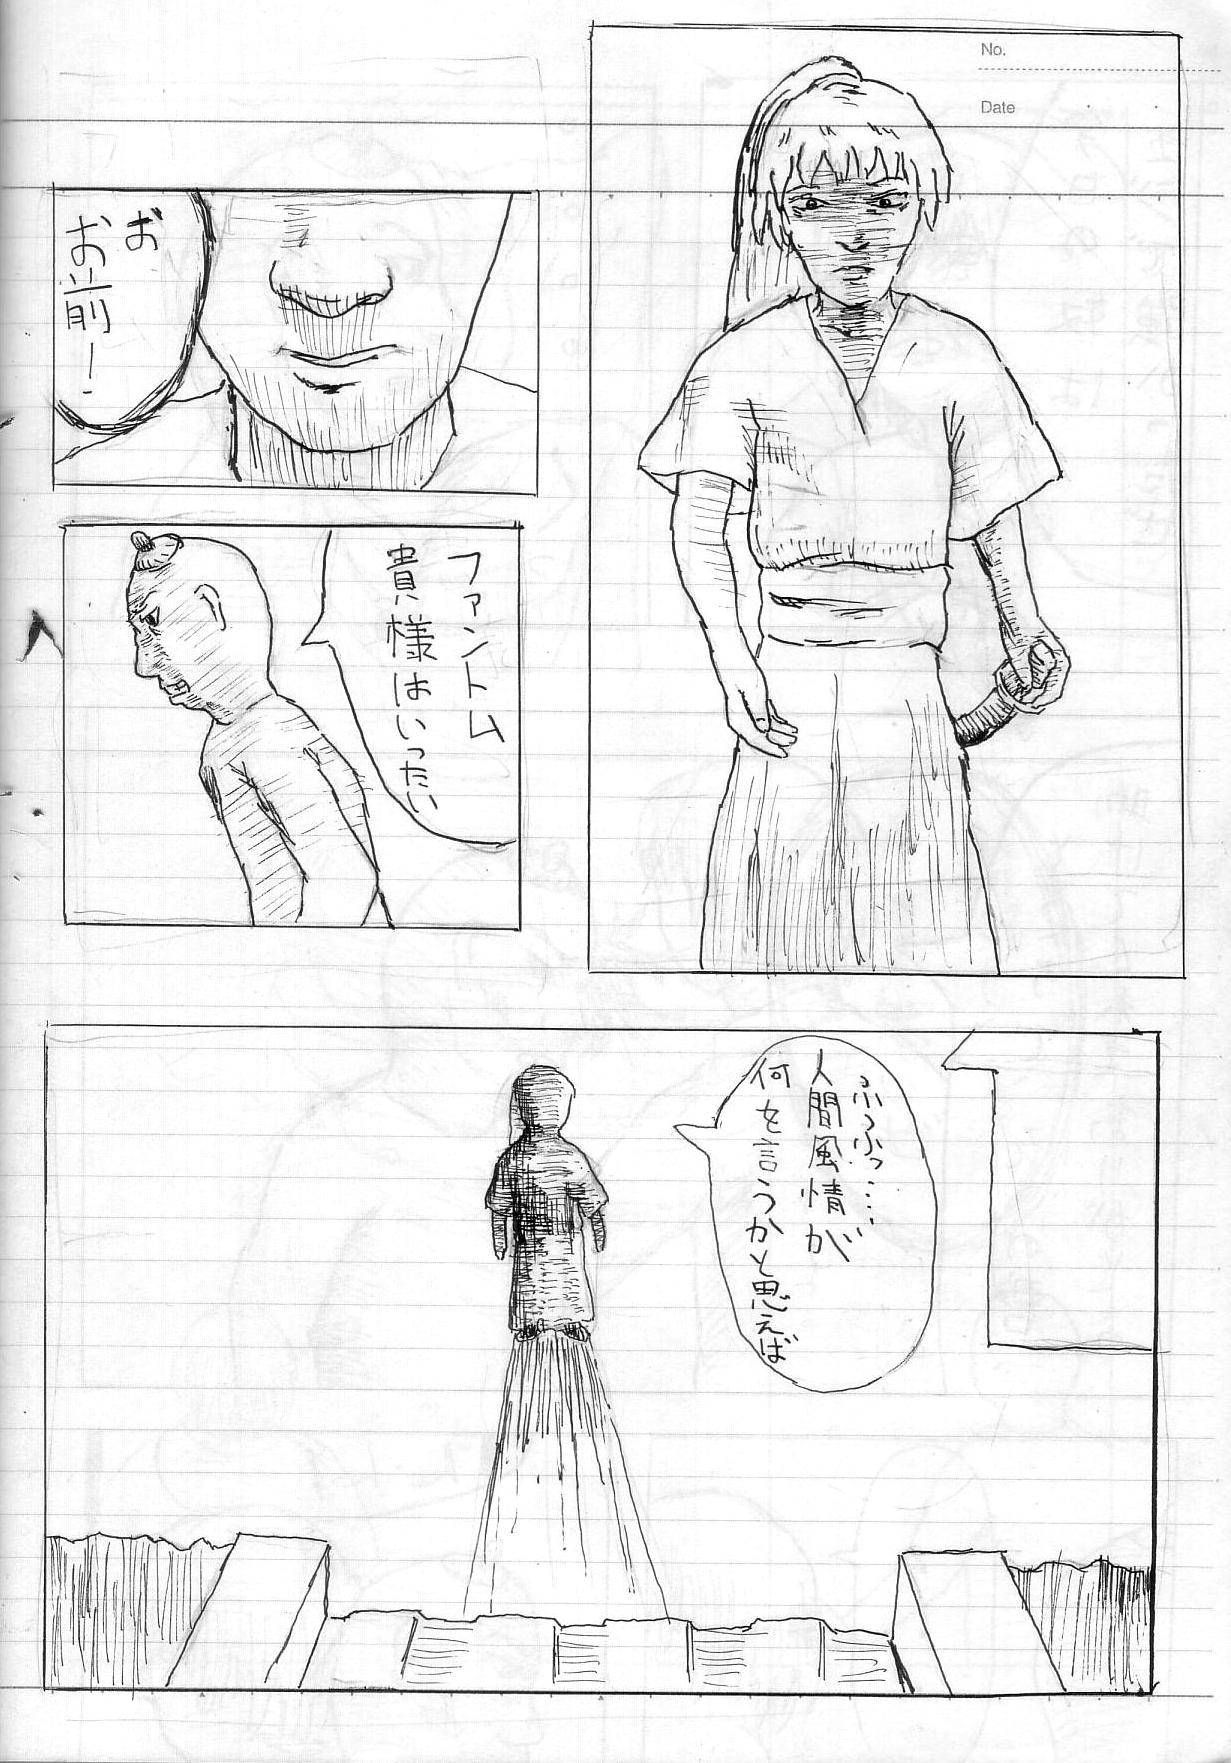 No.
Date
お
お前ー
ファントム
貴様はいったい
ふっふっ……
人間風情が
何を言うかと思えば